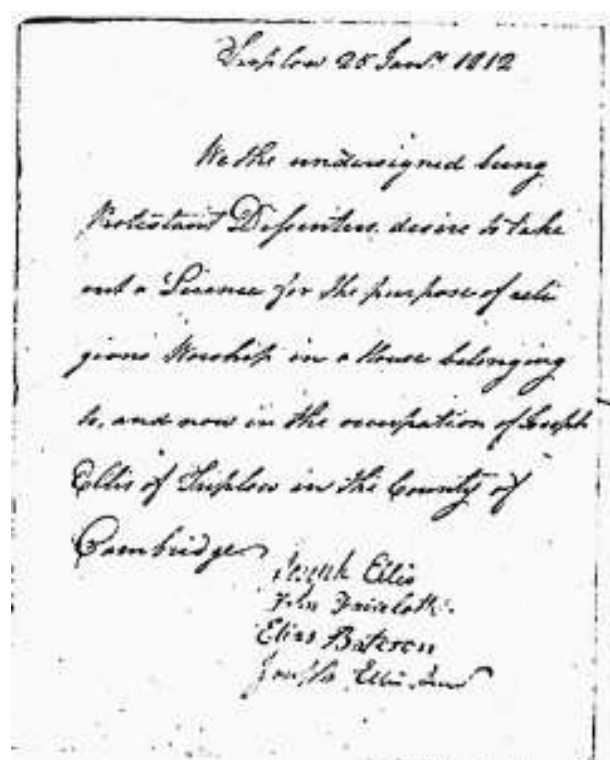 Triplow 25 Janry 1812
We the undersigned being
Protestant Dissenters desire to take
out a Licence for the purpose of reli
gious Worship in a House belonging
to, and now in the occupation of Joseph
Ellis of Triplow in the County of
Cambridge
Joseph Ellis
John Faircloth
Elias Bateson
Joseph Ellis Junr